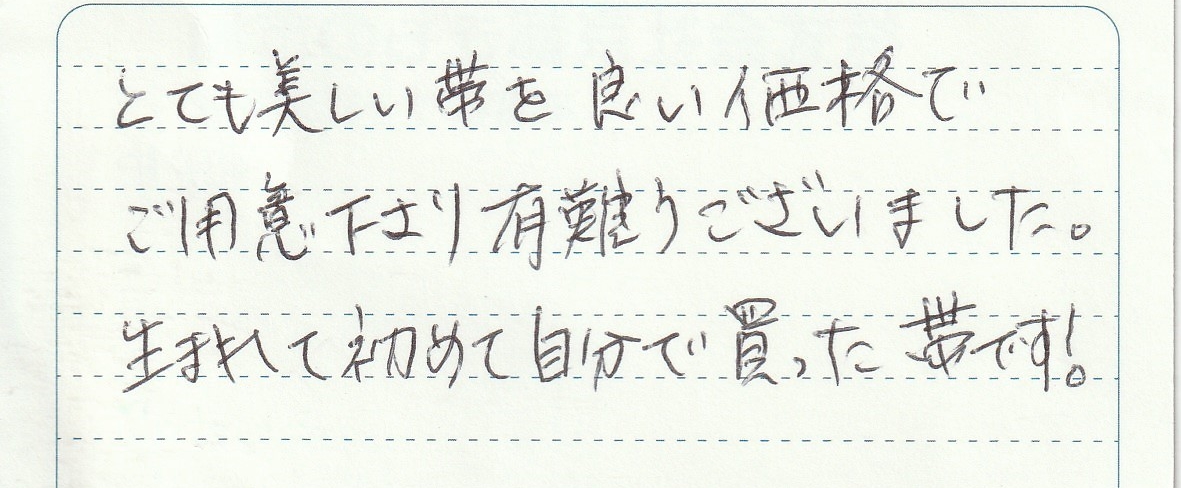 とても美しい帯を良い価格で
ご用意下さり有難りございました。
生まれて初めて自分で買った帯です!